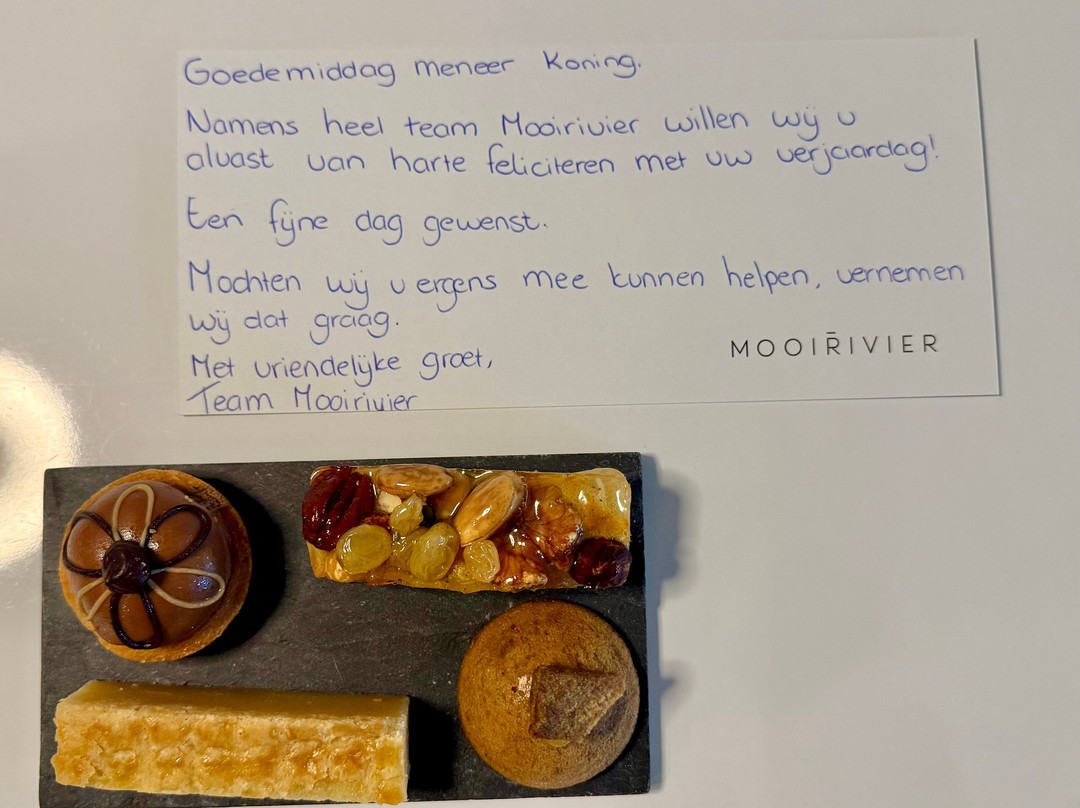 Goedemiddag meneer Koning.
Namens heel team Mooirivier willen wij u
alvast van harte feliciteren met uw verjaardag!
Een fijne dag gewenst.
Mochten wij u ergens mee kunnen helpen, vernemen
wij dat graag.
Met vriendelijke groet,
Team Mooirivier
MOOIRIVIER